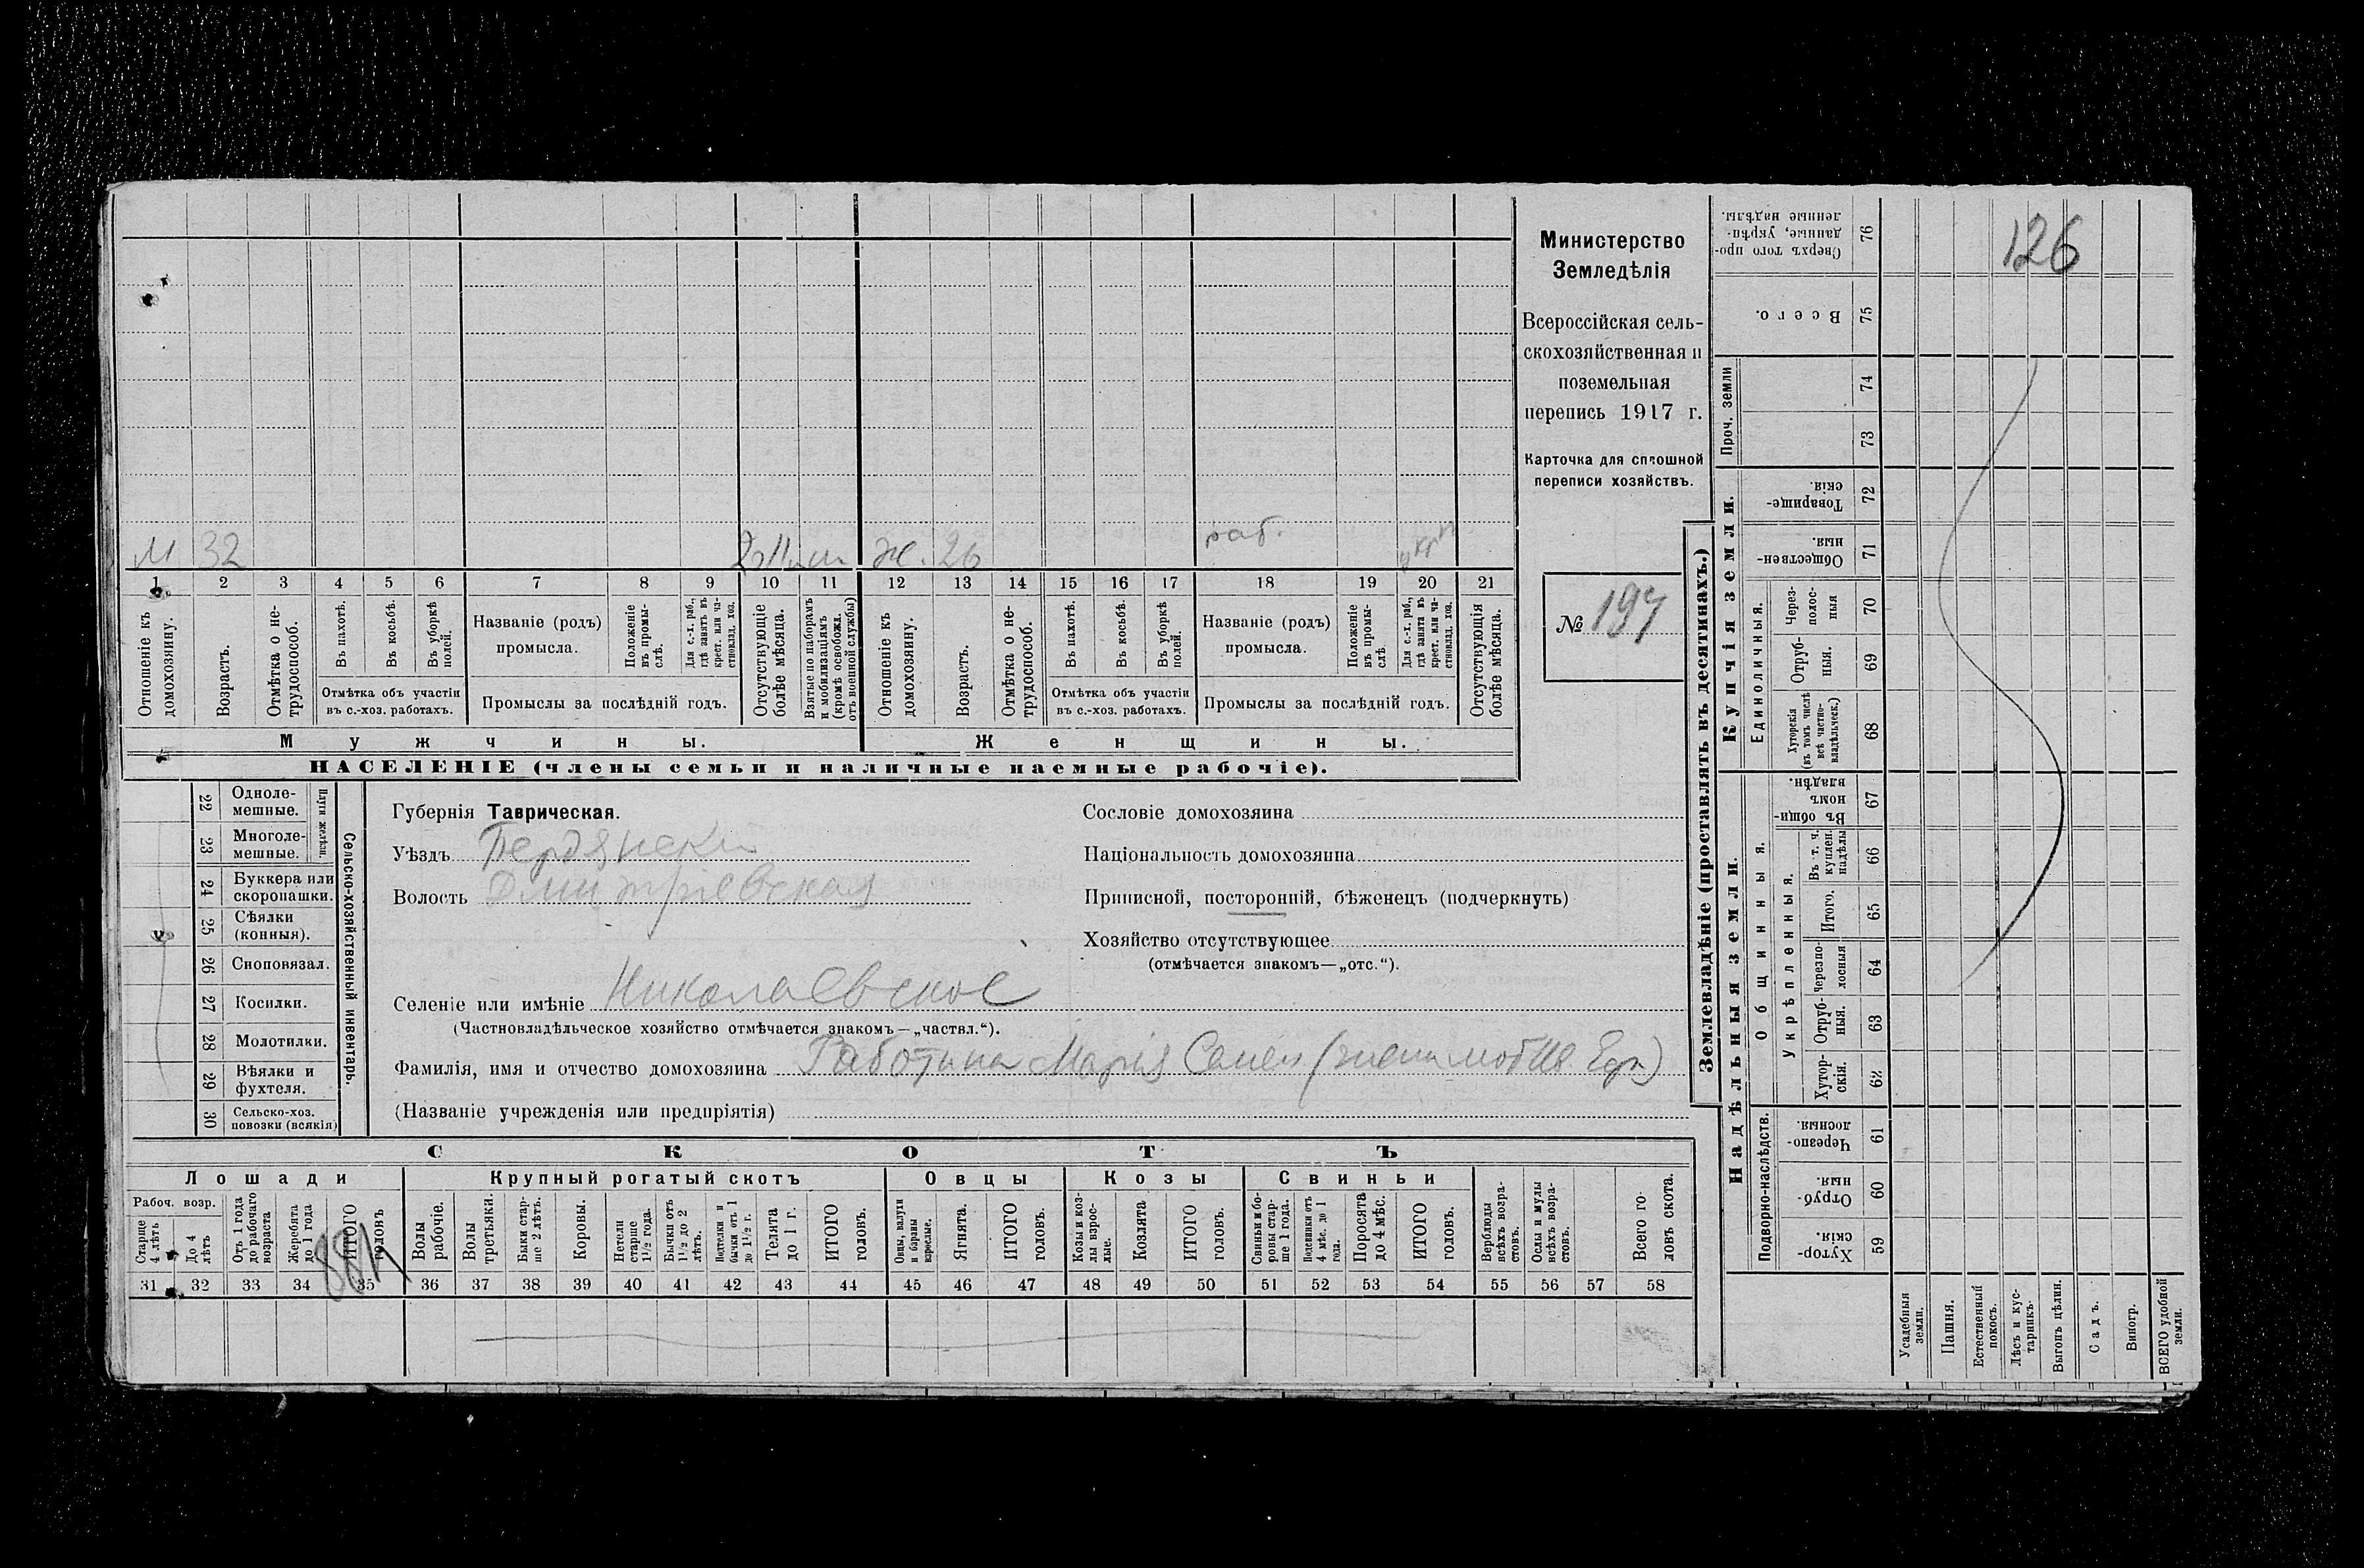 Министерство
Земледѣлія
Всероссійская сель-
скохозяйственная и
поземельная
перепись 1917 г.
Карточка для сплошной
переписи хозяйствъ.
№ 197
126
М 32
Ж. 26 раб.
1 2 3 4 5 6 7 8 9 10 11 12 13 14 15 16 17 18 19 20 21
Отношеніе къ домохозяину.
Возрастъ.
Отмѣтка о не-трудоспособ.
Въ пахотѣ.
Въ косьбѣ.
Въ уборкѣ полей.
Отмѣтка объ участіи
въ с.-хоз. работахъ.
Названіе (родъ)
промысла.
Положеніе въ промы-слѣ.
Для с.-х. раб., гдѣ занятъ въ крест. или ча-стновлад. хоз.
Промыслы за послѣдній годъ.
Отсутствующіе болѣе мѣсяца.
Взятые по наборамъ и мобилизаціямъ (кромѣ освобожд. отъ военной службы)
Отношеніе къ домохозяину.
Возрастъ.
Отмѣтка о не-трудоспособ.
Въ пахотѣ.
Въ косьбѣ.
Въ уборкѣ полей.
Отмѣтка объ участіи
въ с.-хоз. работахъ.
Названіе (родъ)
промысла.
Положеніе въ промы-слѣ.
Для с.-х. раб., гдѣ занята въ крест. или ча-стновлад. хоз.
Промыслы за послѣдній годъ.
Отсутствующія болѣе мѣсяца.
Мужчины.
Женщины.
НАСЕЛЕНІЕ (члены семьи и наличные наемные рабочіе).
22 Одноле-мешные.
23 Многоле-мешные.
Плуги желѣзн.
24 Буккера или скоропашки.
25 Сѣялки (конныя).
26 Сноповязал.
27 Косилки.
28 Молотилки.
29 Вѣялки и фухтеля.
30 Сельско-хоз. повозки (всякія)
Сельско-хозяйственный инвентарь.
Губернія Таврическая.
Уѣздъ Бердянски
Волость Дмитріевская
Селеніе или имѣніе Николаевское
(Частновладѣльческое хозяйство отмѣчается знакомъ—„частвл.“).
Фамилія, имя и отчество домохозяина Работина Марія Семен
(Названіе учрежденія или предпріятія)
Сословіе домохозяина
Національность домохозяина
Приписной, посторонній, бѣженецъ (подчеркнуть)
Хозяйство отсутствующее
(отмѣчается знакомъ—„отс.“).
СКОТЪ
Лошади
Рабоч. возр.
Старше 4 лѣтъ
До 4 лѣтъ
Отъ 1 года до рабочаго возраста
Жеребята до 1 года
ИТОГО головъ
Крупный рогатый скотъ
Волы рабочіе.
Волы третьяки.
Быки стар-ше 2 лѣтъ.
Коровы.
Нетели старше 1½ года.
Бычки отъ 1½ до 2 лѣтъ.
Подтелки и бычки отъ 1 до 1½ г.
Телята до 1 г.
ИТОГО головъ.
Овцы
Овцы, валухи и бараны взрослые.
Ягнята.
ИТОГО головъ.
Козы
Козы и коз-лы взрос-лые.
Козлята
ИТОГО головъ.
Свиньи
Свиньи и бо-ровы стар-ше 1 года.
Подсвинки отъ 4 мѣс. до 1 года.
Поросята до 4 мѣс.
ИТОГО головъ.
Верблюды всѣхъ возра-стовъ.
Ослы и мулы всѣхъ возра-стовъ.
Всего го-ловъ скота.
31 32 33 34 35 36 37 38 39 40 41 42 43 44 45 46 47 48 49 50 51 52 53 54 55 56 57 58
Землевладѣніе (проставлять въ десятинахъ.)
Купчія земли.
Сверхъ того про-данные, укрѣп-ленные надѣлы. 76
Всего. 75
Проч. земли
74
73
Товарище-скія. 72
Обществен-ныя. 71
Единоличныя.
Через-полос-ныя 70
Отруб-ныя. 69
Хуторскія (въ томъ числѣ всѣ частно-владѣльческ.) 68
Надѣльныя земли.
Общинныя.
Въ общи-номъ владѣн. 67
Укрѣпленныя.
Въ т. ч. куплен. надѣлы 66
Итого. 65
Черезпо-лосныя 64
Отруб-ныя. 63
Хутор-скія. 62
Подворно-наслѣдств.
Черезпо-лосныя. 61
Отруб-ныя. 60
Хутор-скія. 59
Усадебныя земли.
Пашня.
Естественный покосъ.
Лѣсъ и кус-тарникъ.
Выгонъ цѣлин.
Садъ.
Виногр.
ВСЕГО удобной земли.